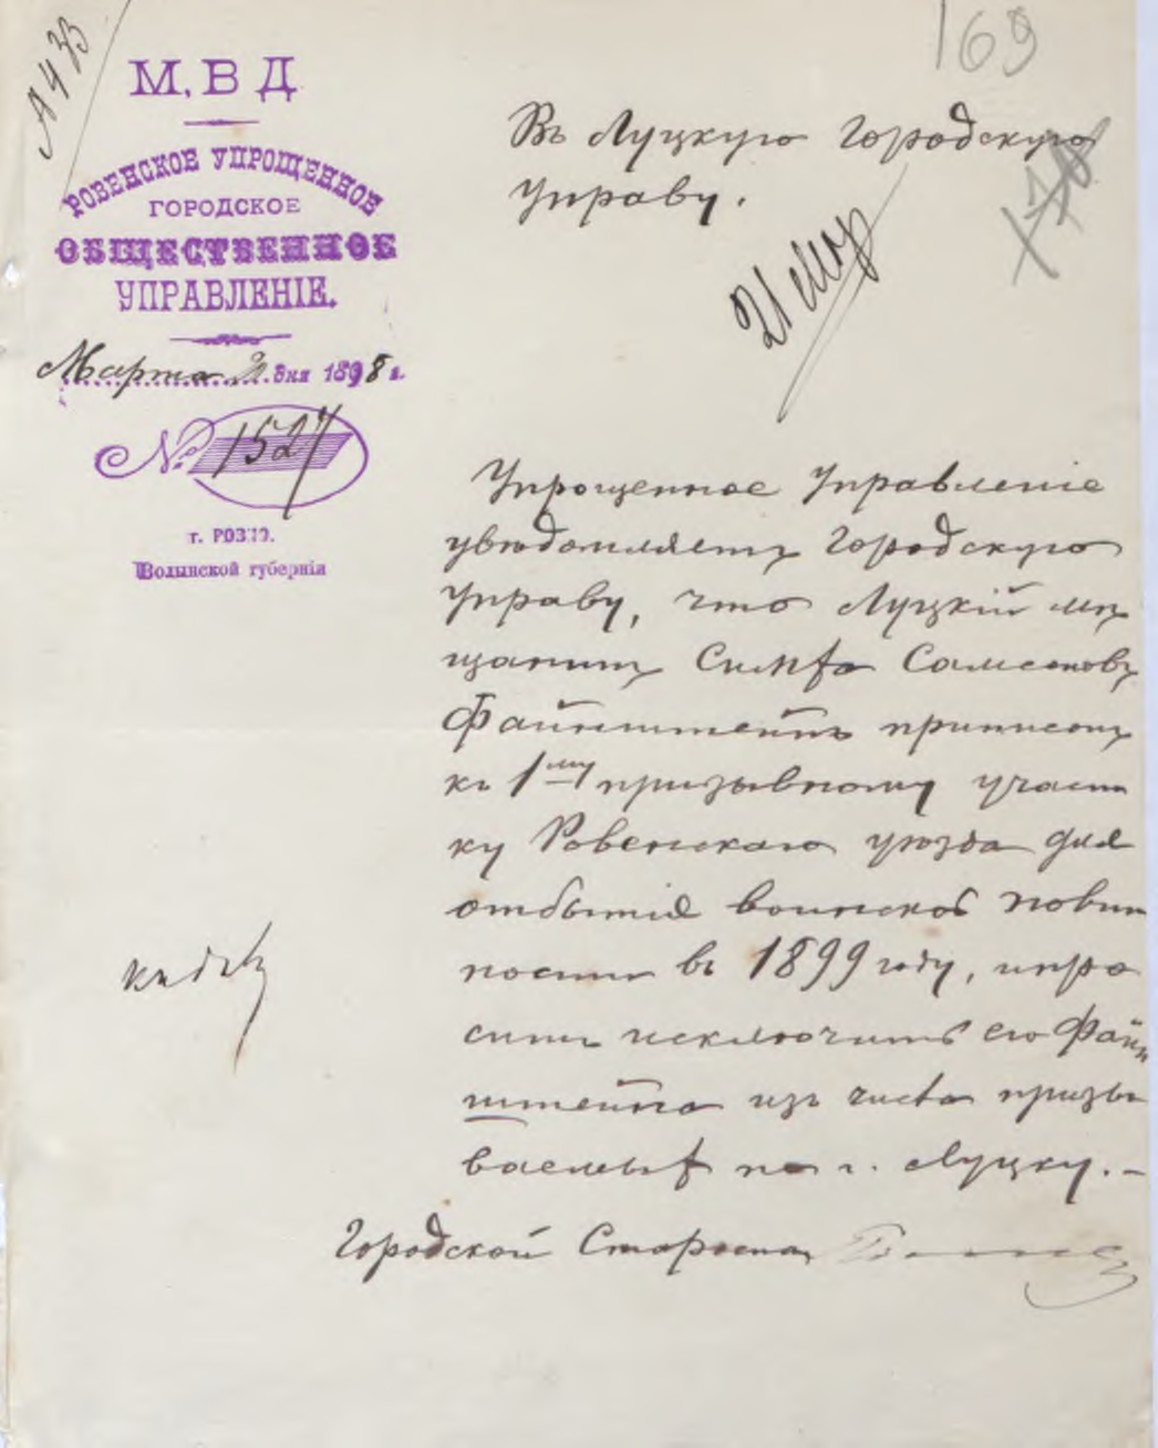 169
М. В Д
РОВЕНСКОЕ УПРОЩЕННОЕ
ГОРОДСКОЕ
ОБЩЕСТВЕННОЕ
УПРАВЛЕНІЕ.
Марта 20 дня 1898 г.
№ 1527
г. РОВНО.
Волынской губерніи
Въ Луцкую Городскую
Управу.
21 Мар
Упрощенное Управленіе
увѣдомляетъ Городскую
Управу, что Луцкій мѣ
щанинъ Симха Самсоновъ
Файнштейнъ приписанъ
къ 1му призывному участ
ку Ровенскаго уѣзда для
отбытія воинской повин
ности въ 1899 году, и про
ситъ исключить его Файн
штейна изъ числа призы
ваемыхъ по г. Луцку. –
Городской Староста